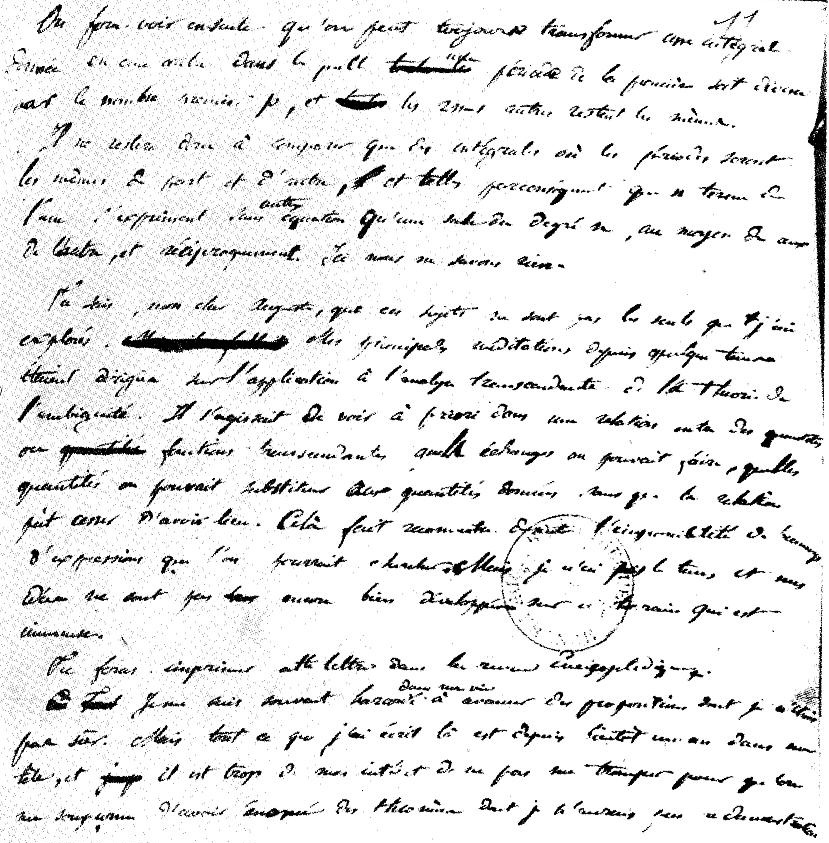 11
On fera voir ensuite qu'on peut toujours transformer une intégrale
donnée en une autre dans laquelle une période de la première soit divisée
par le nombre premier p, et les autres restent les mêmes.
Il ne restera donc à comparer que des intégrales où les périodes seront
les mêmes de part et d'autre, et telles parconséquent que n termes de
l'une s'expriment sans autre équation qu'une seule du degré n, au moyen de ceux
de l'autre, et réciproquement. Ici nous ne savons rien.
Tu sais, mon cher Auguste, que ces sujets ne sont pas les seuls que j'aie
explorés. Mes principales méditations depuis quelque temps
étaient dirigées sur l'application à l'analyse transcendante de la théorie de
l'ambiguité. Il s'agissait de voir à priori dans une relation entre des quantités
ou fonctions transcendantes quels échanges on pouvait faire, quelles
quantités on pouvait substituer aux quantités données sans que la relation
pût cesser d'avoir lieu. Celà fait reconnaitre l'impossibilité de beaucoup
d'expressions que l'on pourrait chercher. Mais je n'ai pas le temps et mes
idées ne sont pas encore bien développées sur ce terrain qui est
immense.
Tu feras imprimer cette lettre dans la revue Encyclopédique.
Je me suis souvent hazardé dans ma vie à avancer des propositions dont je n'étais
pas sûr. Mais tout ce que j'ai écrit là est depuis bientôt un an dans ma
tête, et il est trop de mon intérêt de ne pas me tromper pour qu'on
me soupçonne d'avoir énoncé des théorèmes dont je n'aurais pas la démonstration